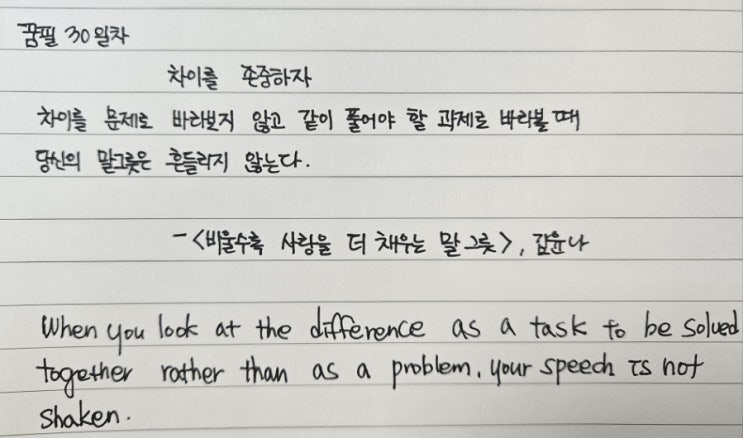 꿈필 30일차
차이를 존중하자
차이를 문제로 바라보지 않고 같이 풀어야 할 과제로 바라볼 때
당신의 말그릇은 흔들리지 않는다.
- <비울수록 사람을 더 채우는 말 그릇>, 김윤나
When you look at the difference as a task to be solved
together rather than as a problem, your speech is not
shaken.